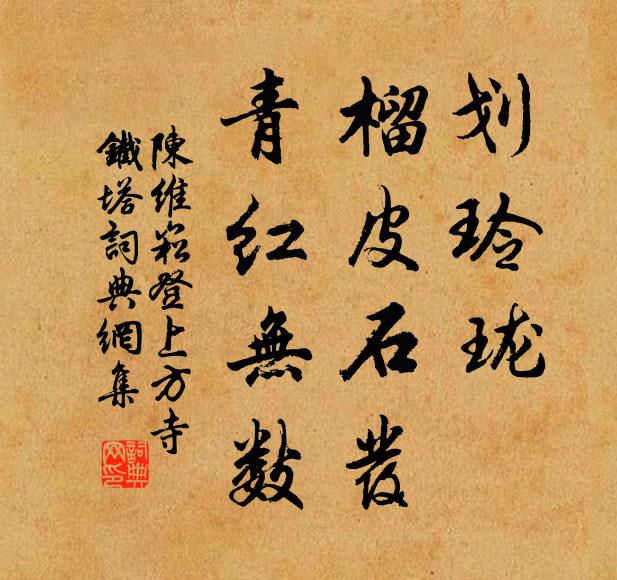 划玲珑
榴皮石發
青红無数
陳維崧登上方寺
鐵塔詞典網集
詞典
网印